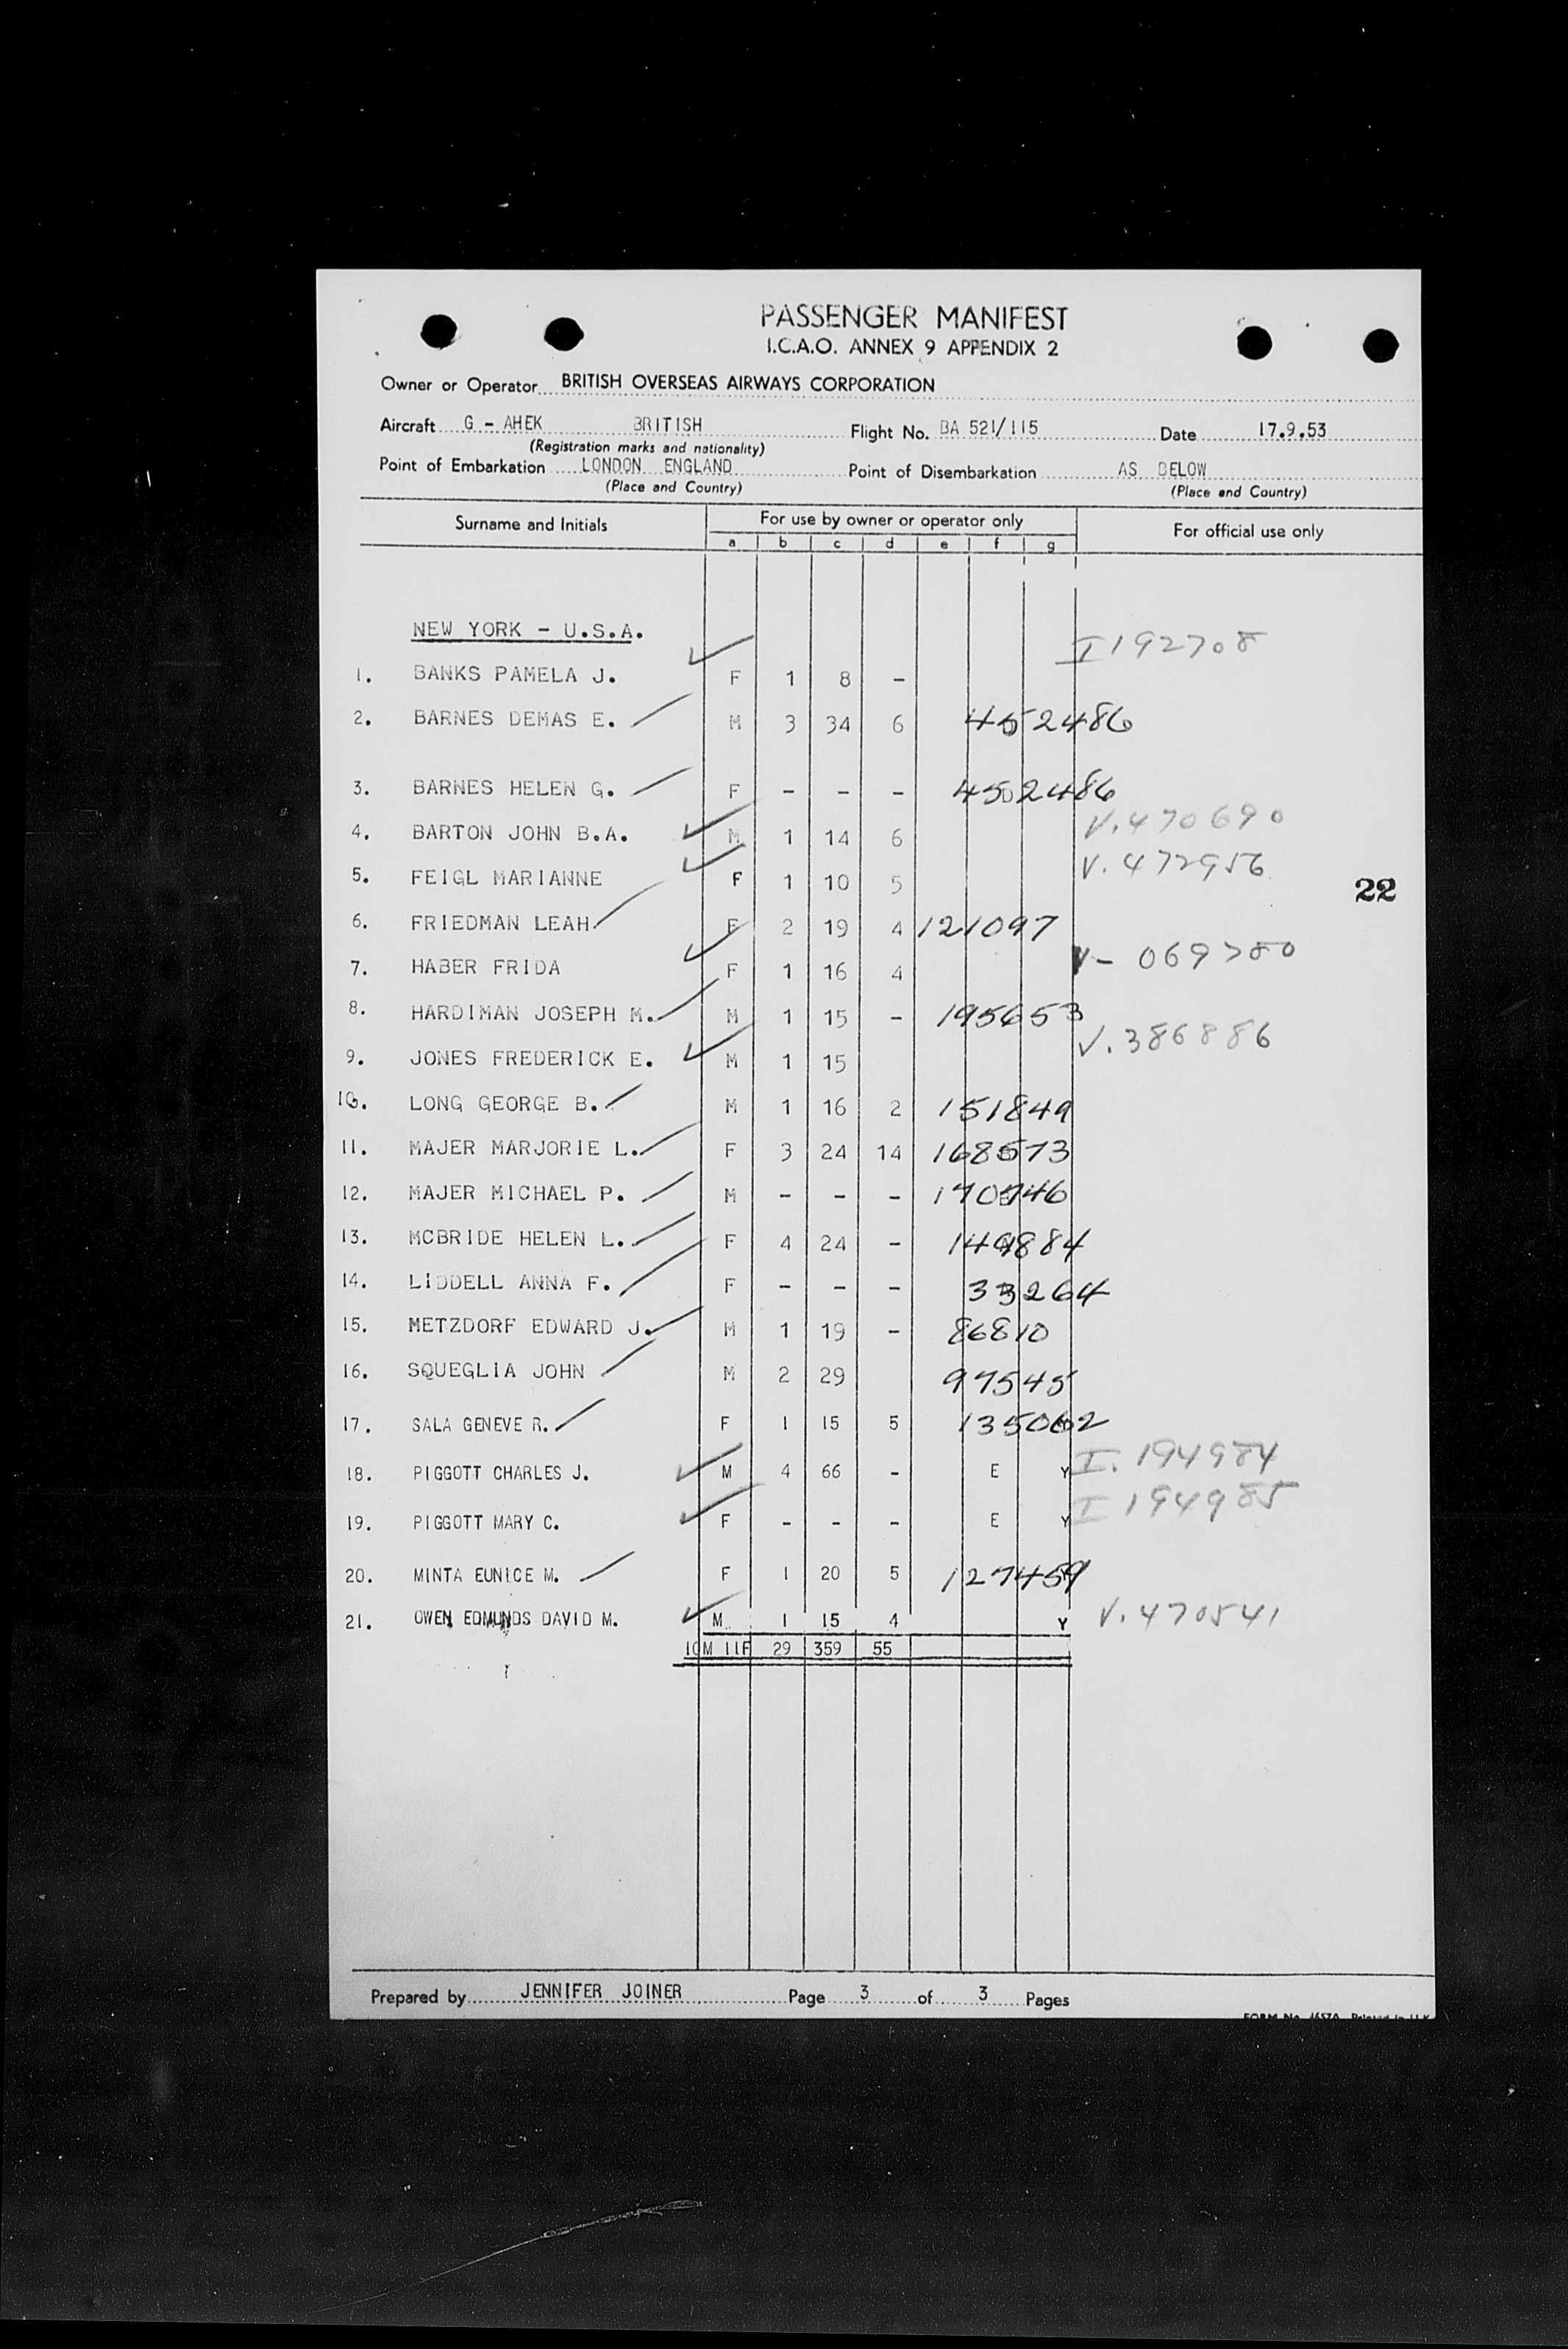 PASSENGER MANIFEST
I.C.A.O. ANNEX 9 APPENDIX 2
Owner or Operator BRITISH OVERSEAS AIRWAYS CORPORATION
Aircraft G - AHEK BRITISH Flight No. BA 521/115 Date 17.9.53
(Registration marks and nationality)
Point of Embarkation LONDON ENGLAND Point of Disembarkation AS BELOW
(Place and Country) (Place and Country)
Surname and Initials For use by owner or operator only For official use only
a b c d e f g
NEW YORK - U.S.A.
I 192708
1. BANKS PAMELA J. F 1 8 -
2. BARNES DEMAS E. M 3 34 6 452486
3. BARNES HELEN G. F - - - 452486
4. BARTON JOHN B.A. M 1 14 6 V.470690
5. FEIGL MARIANNE F 1 10 5 V.472956
22
6. FRIEDMAN LEAH F 2 19 4 121097
7. HABER FRIDA F 1 16 4 V- 069780
8. HARDIMAN JOSEPH M. M 1 15 - 195653
9. JONES FREDERICK E. M 1 15 V.386886
10. LONG GEORGE B. M 1 16 2 151849
11. MAJER MARJORIE L. F 3 24 14 168573
12. MAJER MICHAEL P. M - - - 170746
13. MCBRIDE HELEN L. F 4 24 - 149884
14. LIDDELL ANNA F. F - - - 33264
15. METZDORF EDWARD J. M 1 19 - 86810
16. SQUEGLIA JOHN M 2 29 97545
17. SALA GENEVE R. F 1 15 5 135062
18. PIGGOTT CHARLES J. M 4 66 - E Y I.194984
19. PIGGOTT MARY C. F - - - E Y I 194985
20. MINTA EUNICE M. F 1 20 5 127459
21. OWEN EDMUNDS DAVID M. M 1 15 4 Y V.470541
10M 11F 29 359 55
Prepared by JENNIFER JOINER Page 3 of 3 Pages